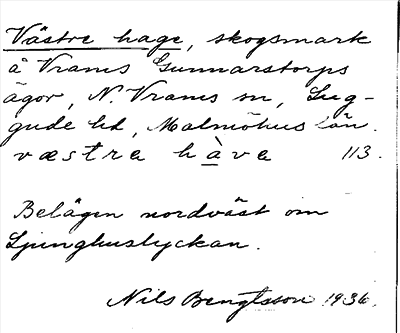 Västre hage, skogsmark
å Vrams Gunnarstorps
ägor, N. Vrams sn, Lug-
gude hd, Malmöhus län.
væstre hàve 113.
Belägen nordväst om
Ljunghuslyckan.
Nils Bengtsson 1936.